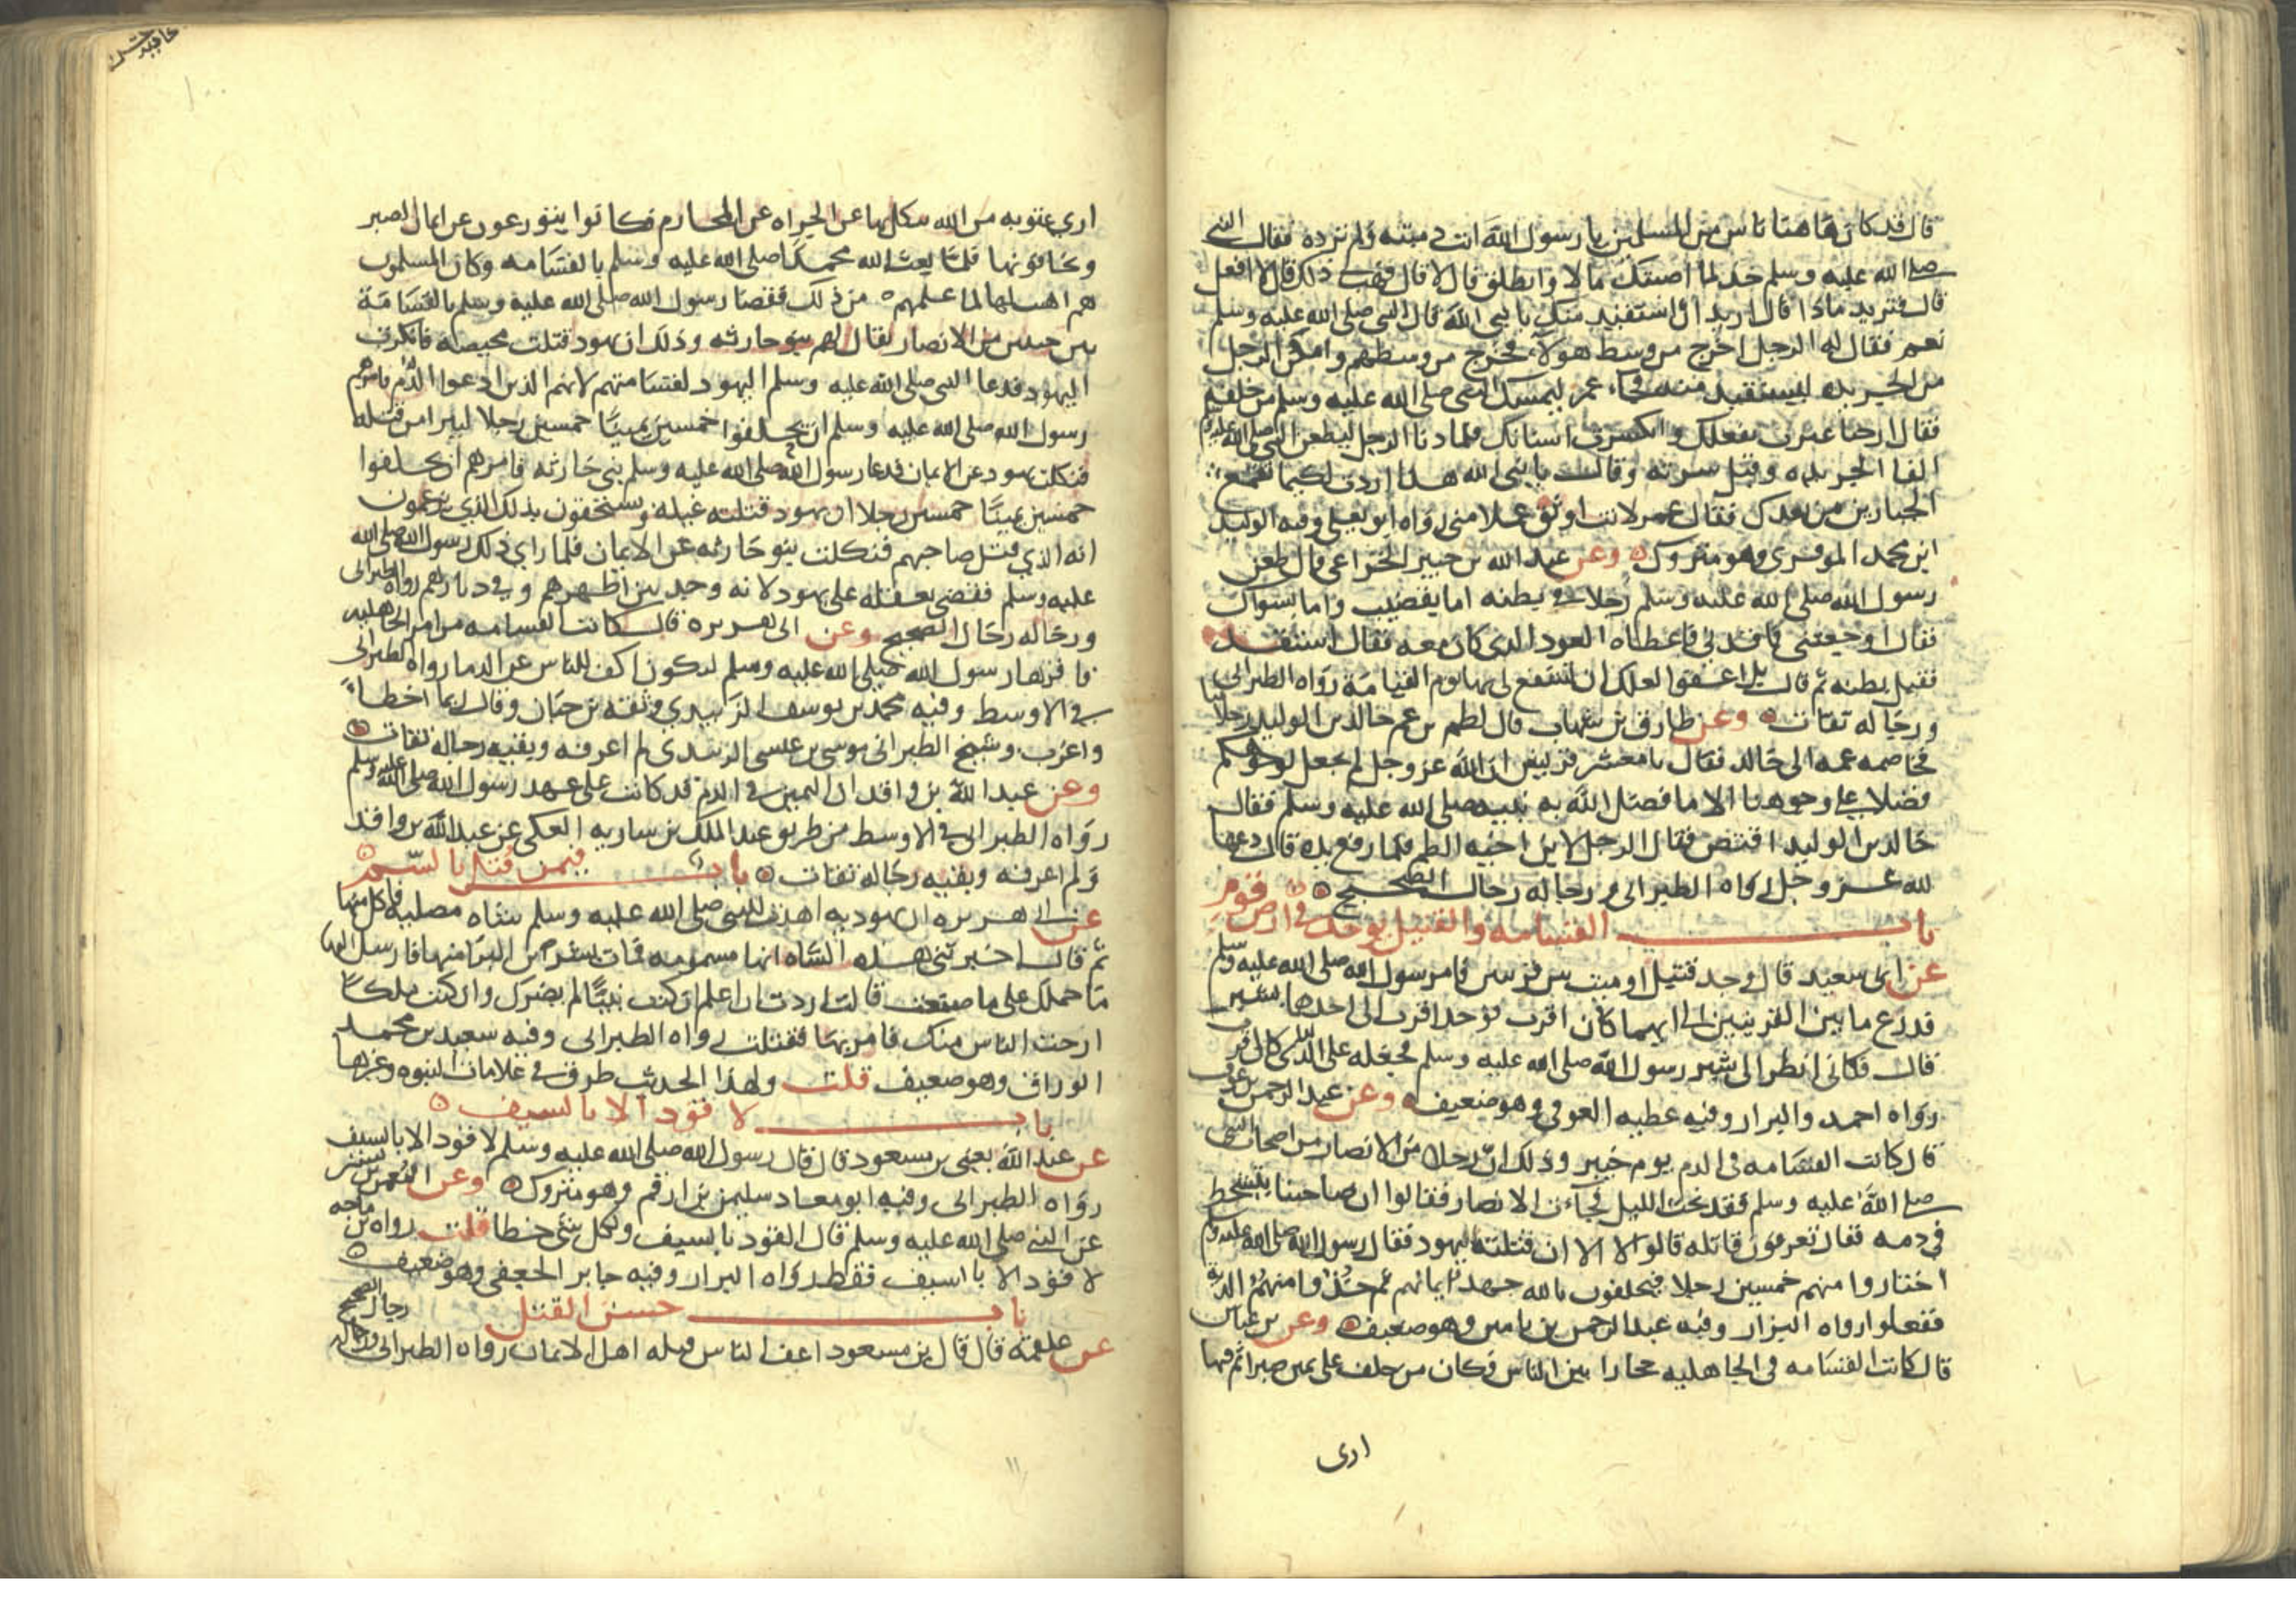 قال قد كان هاهنا ناس من المسلمين يا رسول الله انت دميته ولم ترده فقال النبي
صلى الله عليه وسلم خذ لما اصبتك مالا وانطلق قال لا قال فهب ذلك قال لا افعل
قال فتريد ماذا قال اريد ان استقيد منك يا نبي الله قال النبي صلى الله عليه وسلم
نعم فقال له الرجل اخرج من وسط هولاء فخرج من وسطهم وامكن الرجل
من الجريده ليستقيد منه فجاء عمر ليمسك النبي صلى الله عليه وسلم من خلفه
فقال ارحنا عثرت بنعلك وانكسرت اسنانك فلما دنا الرجل ليطعن النبي صلى الله عليه وسلم
القا الجريده وقبل سرته وقال يا نبي الله هذا اردت لكيما نقمع
الجبارين من بعدك فقال عمر لانت اوثق عملا مني رواه ابو يعلى وفيه الوليد
ابن محمد الموقري وهو متروك وعن عبد الله بن جبير الخزاعي قال طعن
رسول الله صلى الله عليه وسلم رجلا في بطنه اما بقضيب واما بسواك
فقال اوجعتني فاقدني فاعطاه العود الذي كان معه فقال استقد
فقبل بطنه ثم قال بل اعفو لعلك ان تشفع لي بها يوم القيامة رواه الطبراني
ورجاله ثقات وعن طارق بن شهاب قال لطم بن عم خالد بن الوليد رجلا منا
فخاصمه عمه الى خالد فقال يا معشر قريش ان الله عز وجل لم يجعل لوجوهكم
فضلا على وجوهنا الا ما فضل الله به نبيه صلى الله عليه وسلم فقال
خالد بن الوليد اقتص فقال الرجل لابن اخيه الطم فلما رفع يده قال دعها
لله عز وجل رواه الطبراني ورجاله رجال الصحيح
باب القسامه والقتيل يوجد في ارض قوم
عن ابي سعيد قال وجد قتيل او ميت بين قريتين فامر رسول الله صلى الله عليه وسلم
فذرع ما بين القريتين الى ايهما كان اقرب فوجد اقرب الى احدها بشبر
قال فكاني انظر الى شبر رسول الله صلى الله عليه وسلم فجعله على الذي كان اقرب
رواه احمد والبزار وفيه عطيه العوفي وهو ضعيف وعن عبد الرحمن بن عوف
قال كانت القسامه في الدم يوم خيبر وذلك ان رجلا من الانصار من اصحاب النبي
صلى الله عليه وسلم فقد تحت الليل فجآءت الانصار فقالوا ان صاحبنا يتشحط
في دمه فقال تعرفون قاتله قالوا لا الا ان قتلته اليهود فقال رسول الله صلى الله عليه وسلم
اختاروا منهم خمسين رجلا فيحلفون بالله جهد ايمانهم ثم خذوا منهم الدية
ففعلوا رواه البزار وفيه عبد الرحمن بن يامين وهو ضعيف وعن بن عباس
قال كانت القسامه في الجاهليه حجازا بين الناس فكان من حلف على يمين صبر اثم فيها
ارى
١٠٠
ارى عقوبه من الله ينكل بها عن الجراه عن المحارم فكانوا يتورعون عن ايمان الصبر
ويخافونها فلما بعث الله محمدا صلى الله عليه وسلم بالقسامه وكان المسلمون
هم اهيب لها لما علمهم من ذلك فقضا رسول الله صلى الله عليه وسلم بالقسامة
بين حيين من الانصار يقال لهم بنو حارثه وذلك ان يهود قتلت محيصه فانكرت
اليهود فدعا النبي صلى الله عليه وسلم اليهود لقسامتهم لانهم الذين ادعوا الدم فامرهم
رسول الله صلى الله عليه وسلم ان يحلفوا خمسين يمينا خمسين رجلا ليبرا من قتله
فنكلت يهود عن الايمان فدعا رسول الله صلى الله عليه وسلم بني حارثه فامرهم ان يحلفوا
خمسين يمينا خمسين رجلا ان يهود قتلته غيله ويستحقون بذلك الذي يزعمون
انه الذي قتل صاحبهم فنكلت بنو حارثه عن الايمان فلما راى ذلك رسول الله صلى الله
عليه وسلم فقضى بعقله على يهود لانه وجد بين اظهرهم وفي ديارهم رواه الطبراني
ورجاله رجال الصحيح وعن ابي هريره قال كانت القسامه من امر الجاهليه
فاقرها رسول الله صلى الله عليه وسلم لتكون اكف للناس عن الدما رواه الطبراني
في الاوسط وفيه محمد بن يوسف الزبيدي وثقه بن حبان وقال ربما اخطاء
واغرب وشيخ الطبراني موسى بن عيسى الزبيدي لم اعرفه وبقيه رجاله ثقات
وعن عبد الله بن واقد ان اليمين في الدم قد كانت على عهد رسول الله صلى الله عليه وسلم
رواه الطبراني في الاوسط من طريق عبد الملك بن ساريه العكي عن عبد الله بن واقد
ولم اعرفه وبقيه رجاله ثقات باب فيمن قتل بالسم
عن ابي هريره ان يهوديه اهدت للنبي صلى الله عليه وسلم شاه مصليه فاكل منها
ثم قال اخبرتني هذه الشاه انها مسمومه فمات بشر بن البرا منها فارسل اليها
ما حملك على ما صنعت قالت اردت ان اعلم ان كنت نبيا لم يضرك وان كنت ملكا
ارحت الناس منك فامر بها فقتلت رواه الطبراني وفيه سعيد بن محمد
الوراق وهو ضعيف قلت ولهذا الحديث طرق في علامات النبوه وغزها
باب لا قود الا بالسيف
عن عبد الله يعني بن مسعود قال قال رسول الله صلى الله عليه وسلم لا قود الا بالسيف
رواه الطبراني وفيه ابو معاد سليمن بن ارقم وهو متروك وعن النعمن بن بشير
عن النبي صلى الله عليه وسلم قال القود بالسيف ولكل شي خطا قلت رواه بن ماجه
لا قود الا بالسيف فقط رواه البزار وفيه جابر الجعفي وهو ضعيف
باب حسن القتل
عن علقمة قال قال بن مسعود اعف الناس قتله اهل الايمان رواه الطبراني ورجاله رجال الصحيح